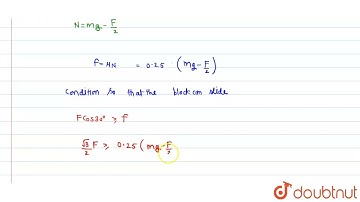 N = mg - F/2
f = μN = 0.25 (mg - F/2)
Condition so that the block can slide
F cos 30° ≥ f
√3/2 F ≥ 0.25 ( mg - F/2
doubtnut